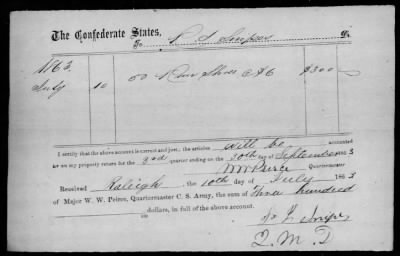 The Confederate States,
To Dr.
1863
July 10 50 Shoes @ $6 $300
I certify that the above account is correct and just; the articles will be accounted
for on my property return for the 3rd quarter ending on the 30th of September 1863
W W Peirce Quartermaster
Received Raleigh, the 10th day of July 1863
of Major W. W. Peirce, Quartermaster C. S. Army, the sum of Three hundred
dollars, in full of the above account.